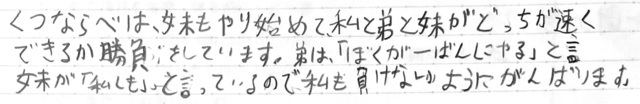 くつならべは、妹もやり始めて、私と弟と妹がどっちが速く
できるか勝負をしています。弟は、「ぼくが一ばんにやる」と言
妹が「私も」と言っているので私も負けないようにがんばります